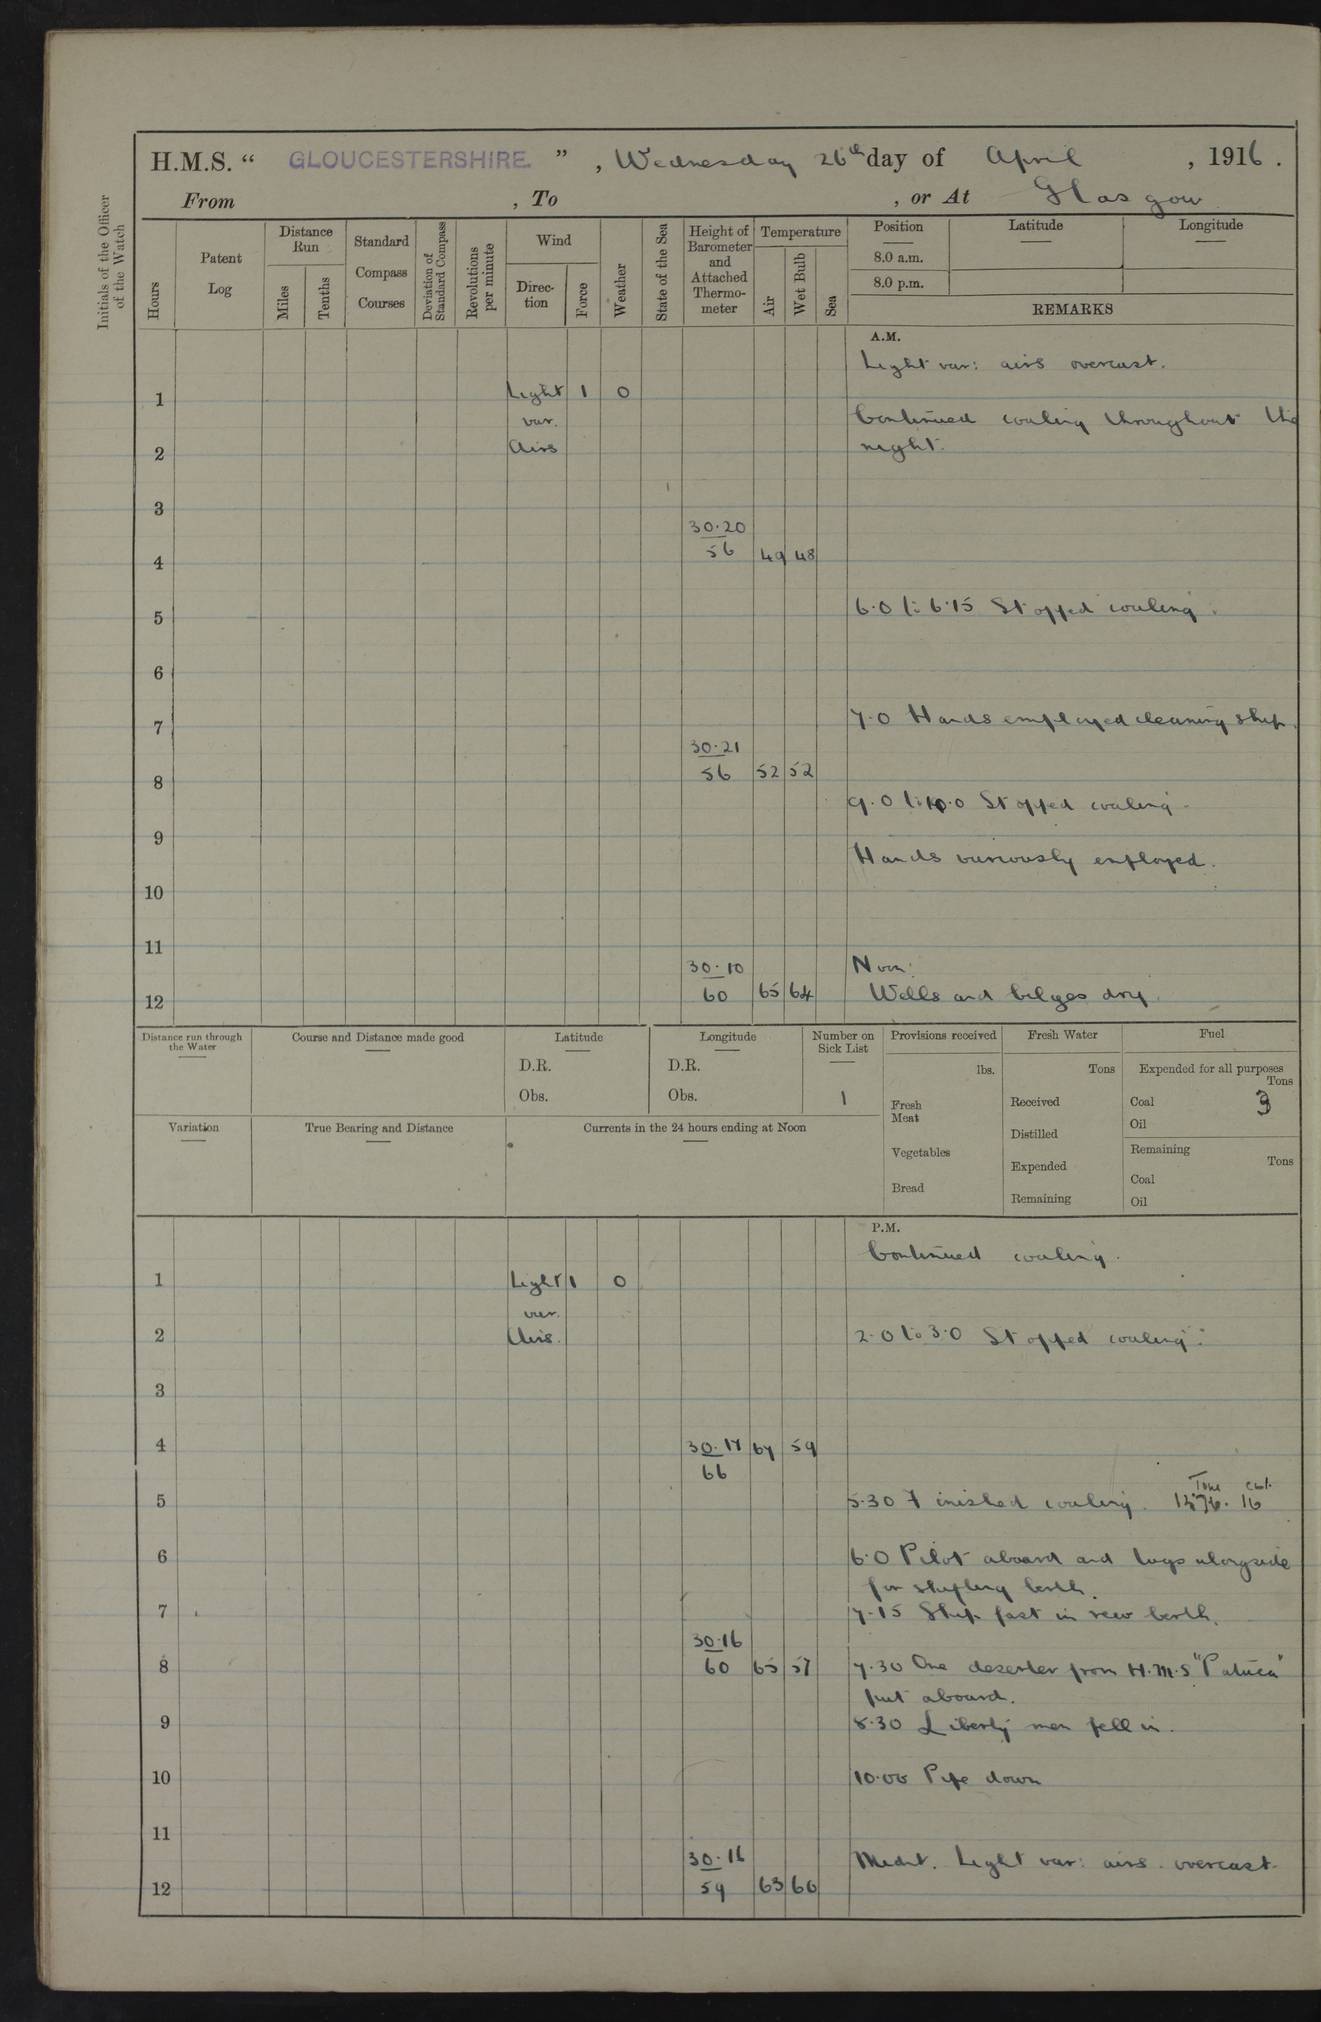 H.M.S. “ GLOUCESTERSHIRE ” , Wednesday 26th day of April , 1916 .
From , To , or At Glasgow
Initials of the Officer of the Watch
Hours
Patent Log
Distance Run
Miles
Tenths
Standard Compass Courses
Deviation of Standard Compass
Revolutions per minute
Wind
Direction
Force
Weather
State of the Sea
Height of Barometer and Attached Thermometer
Temperature
Air
Wet Bulb
Sea
Position Latitude Longitude
8.0 a.m.
8.0 p.m.
REMARKS
A.M.
Light var: airs overcast.
1 Light 1 0
var. Continued coaling throughout the
2 Airs night.
3
30.20
4 56 49 48
5 6.0 to 6.15 Stopped coaling.
6
7 7.0 Hands employed cleaning ship.
30.21
8 56 52 52
9.0 to 10.0 Stopped coaling.
9
Hands variously employed.
10
11
30.10 Noon:
12 60 65 64 Wells and bilges dry.
Distance run through the Water
Course and Distance made good
Latitude
D.R.
Obs.
Longitude
D.R.
Obs.
Number on Sick List
1
Provisions received
lbs.
Fresh Meat
Vegetables
Bread
Fresh Water
Tons
Received
Distilled
Expended
Remaining
Fuel
Expended for all purposes
Tons
Coal
Oil
Remaining
Tons
Coal
Oil
Variation
True Bearing and Distance
Currents in the 24 hours ending at Noon
P.M.
Continued coaling.
1 Light 1 0
var.
2 Airs. 2.0 to 3.0 Stopped coaling.
3
4 30.17 67 59
66
Tons cwt.
5 5.30 Finished coaling. 16
6 6.0 Pilot aboard and tugs alongside
for shifting berth.
7 7.15 Ship fast in new berth.
30.16
8 60 65 57 7.30 One deserter from H.M.S. "Patuca"
put aboard.
9 8.30 Liberty men fell in.
10 10.00 Pipe down
11
30.16 Midnt. Light var: airs. overcast.
12 59 63 60